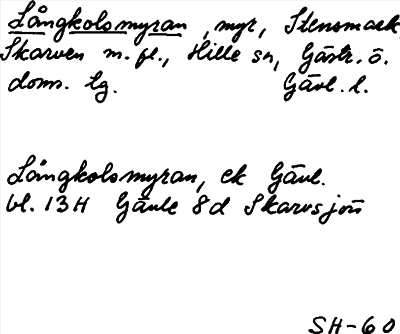 Långkolsmyran, myr, Stensmark,
Skarven m. fl., Hille sn, Gästr. ö.
doms. lg. Gävl. l.
Långkolsmyran, ek Gävl.
bl. 13H Gävle 8d Skarvsjön
SH-60